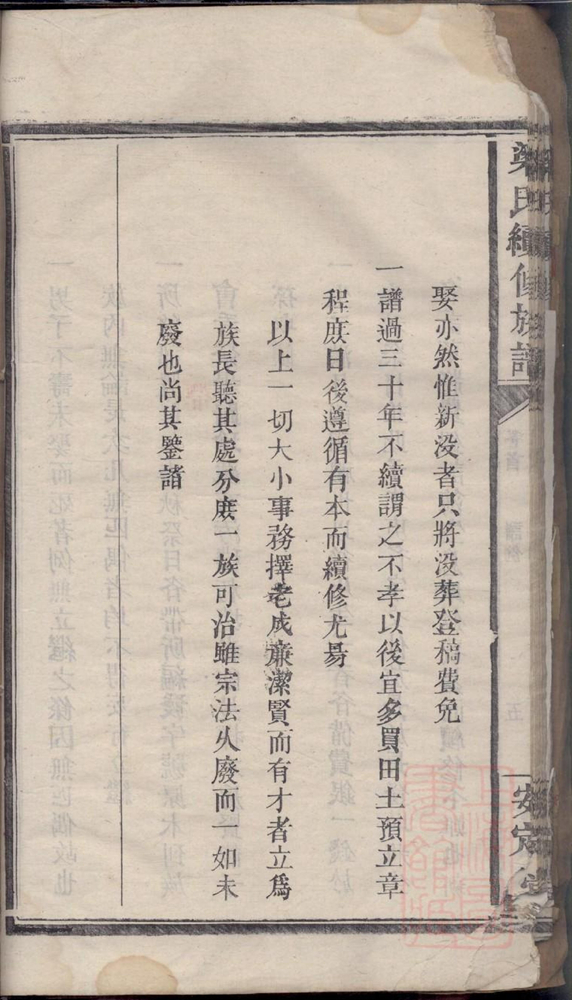 梁氏續修族譜
安定堂
娶亦然惟新没者只將没葬登稿費免
一譜過三十年不續謂之不孝以後宜多買田土預立章
程庶日後遵循有本而續修尤易
以上一切大小事務擇老成廉潔賢而有才者立爲
族長聽其處分庶一族可治雖宗法久廢而一如未
廢也尚其鑒諸